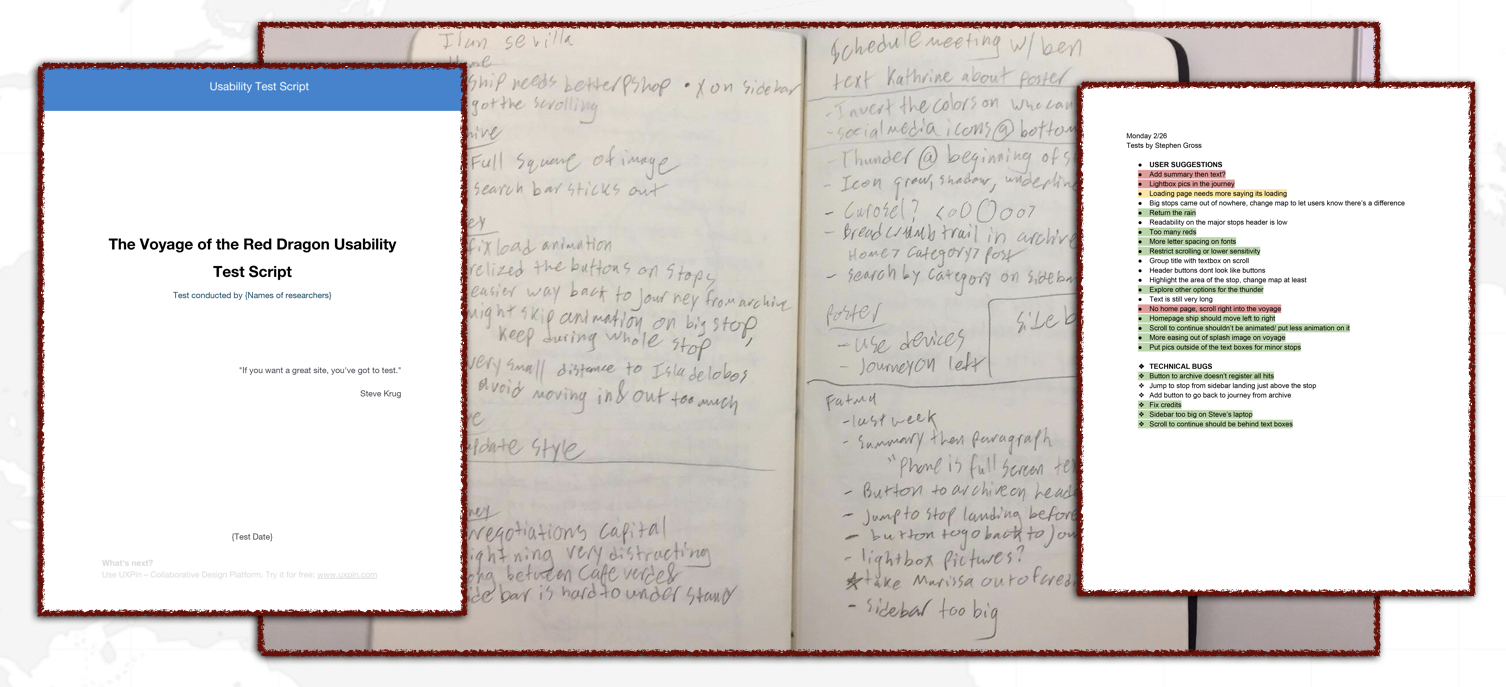 Usability Test Script
The Voyage of the Red Dragon Usability
Test Script
Test conducted by {Names of researchers}
"If you want a great site, you've got to test."
Steve Krug
{Test Date}
What's next?
Use UXPin – Collaborative Design Platform. Try it for free: www.uxpin.com
Ilan sevilla
Home
ship needs better pshop • X on sidebar
got the scrolling
hive
Full square of image
search bar sticks out
fix load animation
relized the buttons on stops
easier way back to Journey from archive
might skip animation on big stop,
keep during whole stop
very small distance to Isla de lobos
avoid moving in & out too much
update style
negotiations capital
lightning very distracting
between Cafe verde &
side bar is hard to understand
Schedule meeting w/ ben
text Kathrine about poster
- Invert the colors on who can
- social media icons @ bottom
- Thunder @ beginning of s
- Icon grow, shadow, underline
- Carosel?
- Breadcrumb trail in archive
Home > Category > Post
- search by category on sidebar
Poster
- use devices
- Journey on left
sideb
Fatma
- last week
- summary then paragraph
"Phone is full screen te
- Button to archive on head
- Jump to stop landing before
- button to go back to Jou
- lightbox pictures?
* take Marissa out of cred
- sidebar too big
Monday 2/26
Tests by Stephen Gross
● USER SUGGESTIONS
● Add summary then text?
● Lightbox pics in the journey
● Loading page needs more saying its loading
● Big stops came out of nowhere, change map to let users know there's a difference
● Return the rain
● Readability on the major stops header is low
● Too many reds
● More letter spacing on fonts
● Restrict scrolling or lower sensitivity
● Group title with textbox on scroll
● Header buttons dont look like buttons
● Highlight the area of the stop, change map at least
● Explore other options for the thunder
● Text is still very long
● No home page, scroll right into the voyage
● Homepage ship should move left to right
● Scroll to continue shouldn't be animated/ put less animation on it
● More easing out of splash image on voyage
● Put pics outside of the text boxes for minor stops
❖ TECHNICAL BUGS
❖ Button to archive doesn't register all hits
❖ Jump to stop from sidebar landing just above the stop
❖ Add button to go back to journey from archive
❖ Fix credits
❖ Sidebar too big on Steve's laptop
❖ Scroll to continue should be behind text boxes